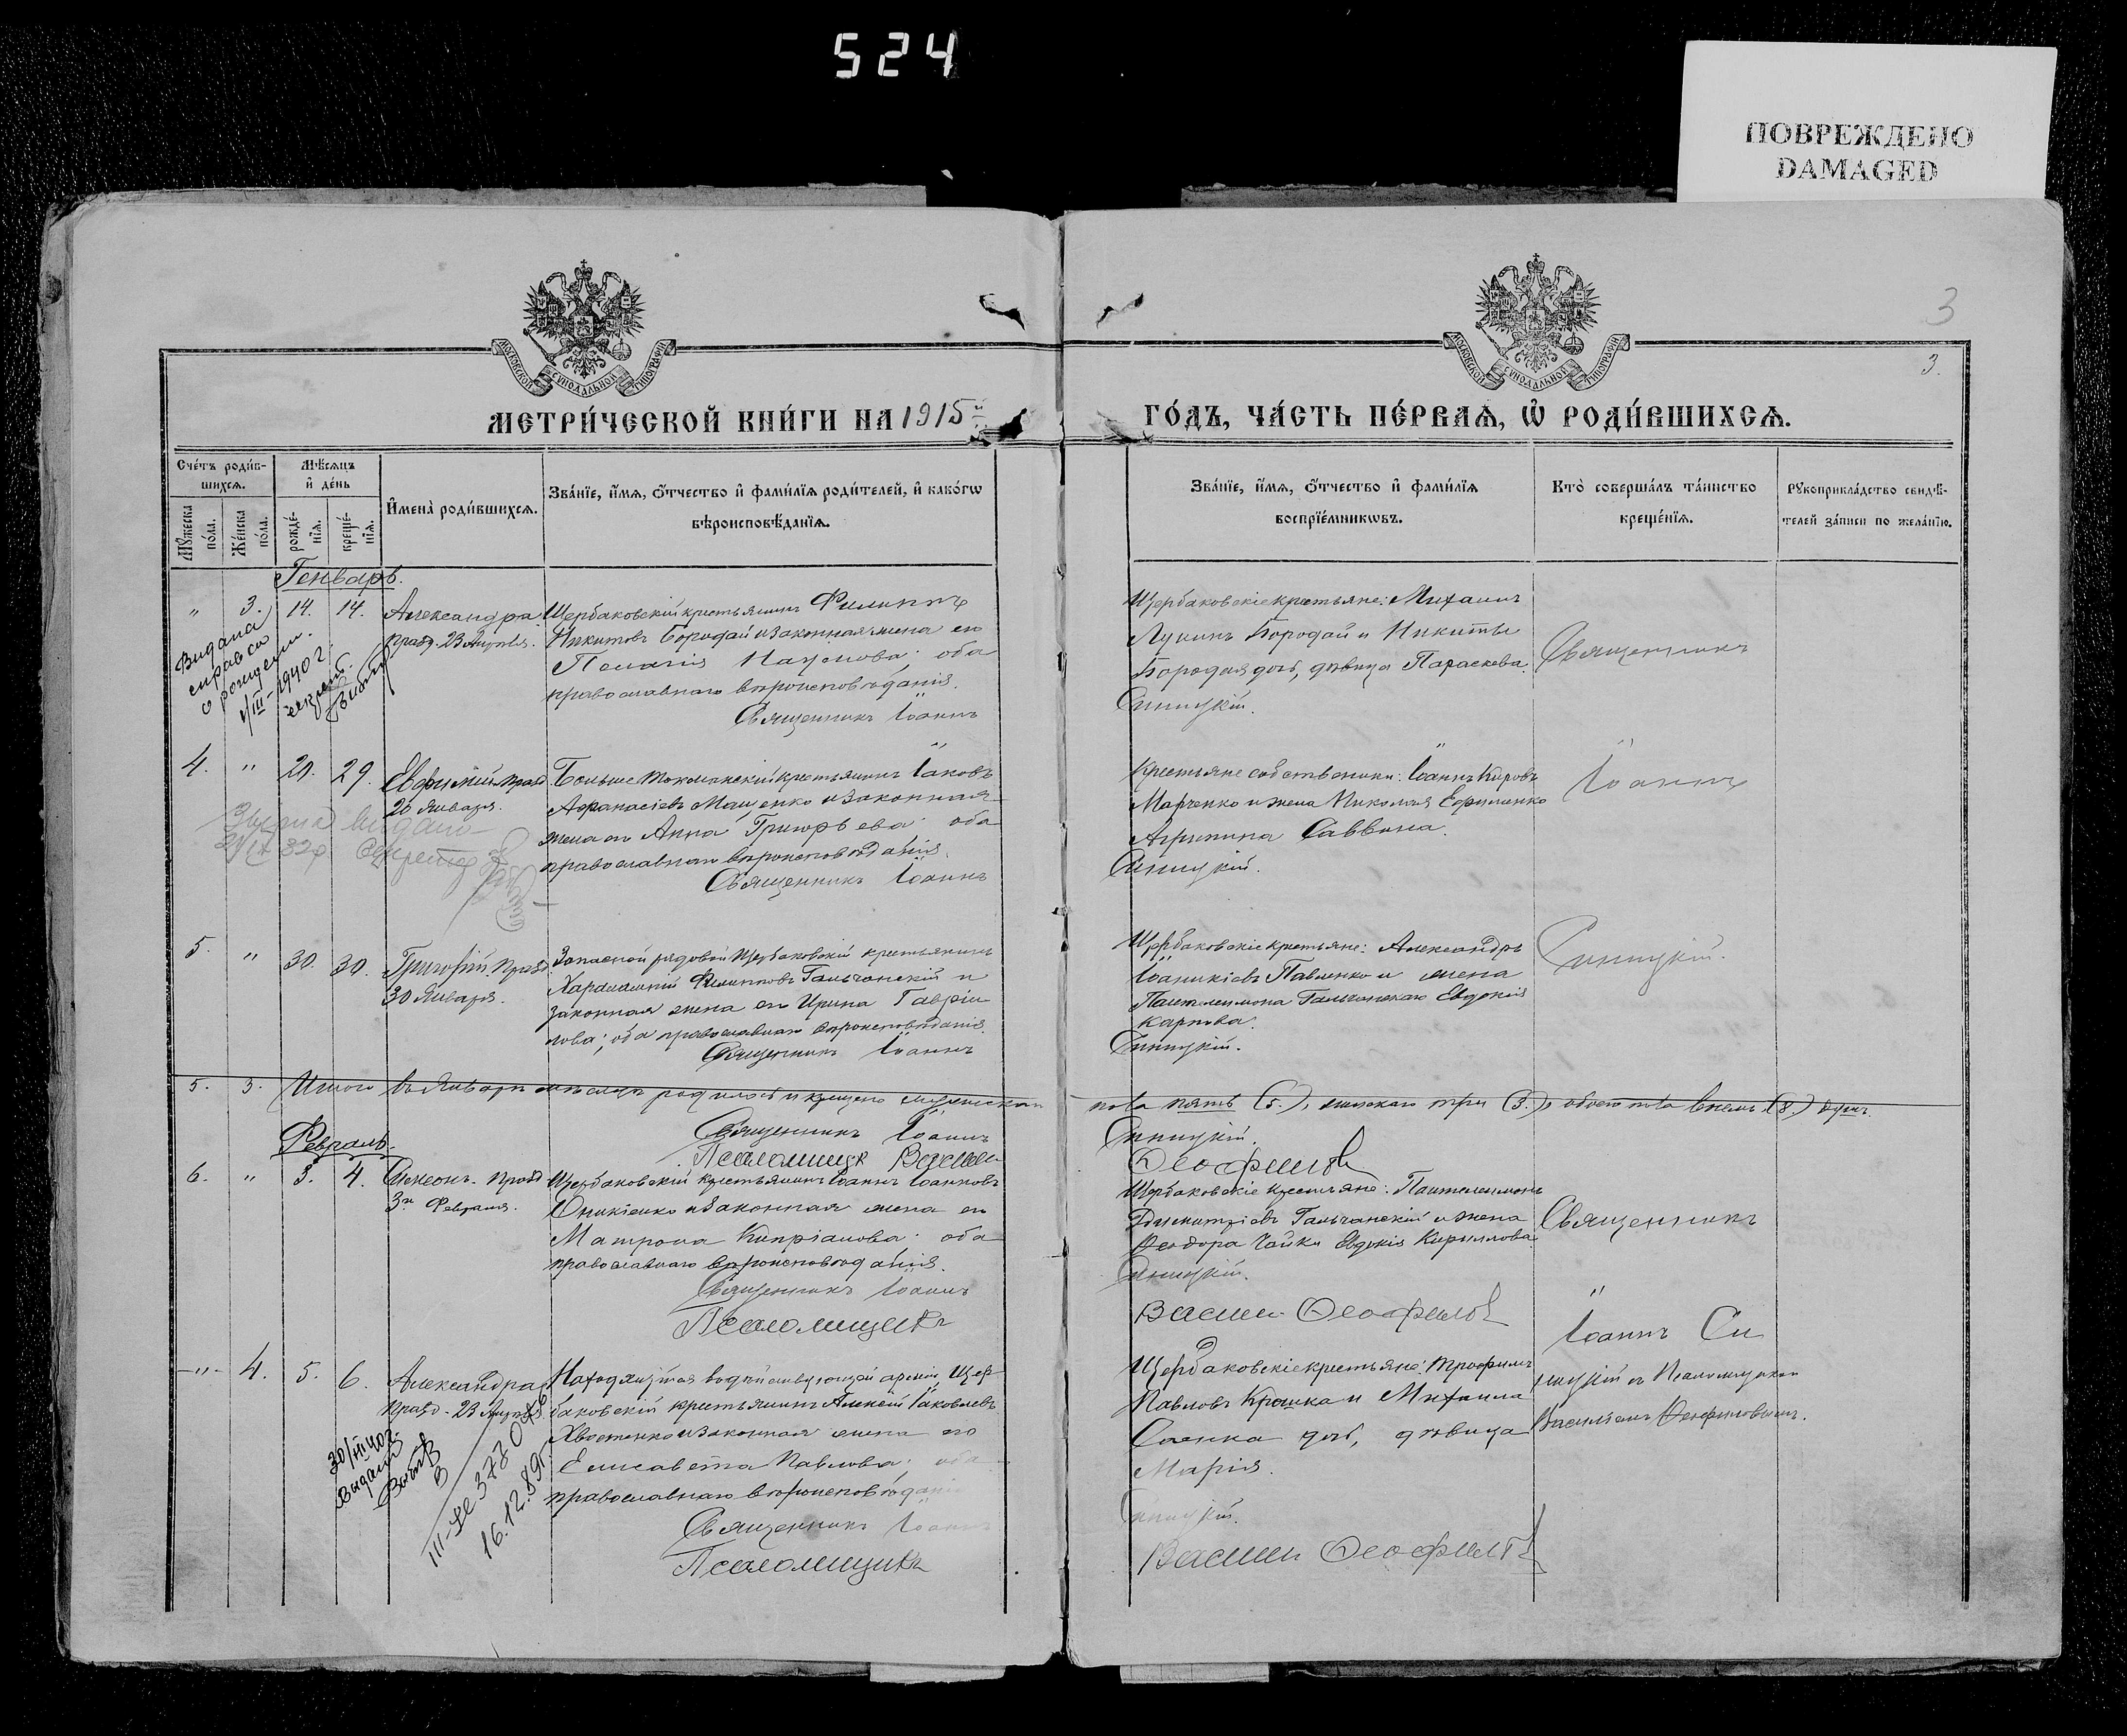 524
ПОВРЕЖДЕНО
DAMAGED
3
3.
МОСКОВСКОЙ СѴНОДАЛЬНОЙ ТИПОГРАФІИ
МОСКОВСКОЙ СѴНОДАЛЬНОЙ ТИПОГРАФІИ
МЕТРИ́ЧЕСКОЙ КНИ́ГИ НА 1915й
ГО́ДЪ, ЧА́СТЬ ПЕ́РВАѦ, Ѡ҆ РОДИ́ВШИХСѦ.
Сче́тъ роди́в-
шихсѧ.
Мѣ́сѧцъ
и҆ де́нь
Мꙋ́жеска по́ла.
Же́нска по́ла.
рожде́-
нїѧ.
креще́-
нїѧ.
И҆мена̀ роди́вшихсѧ.
Зва́нїе, и҆́мѧ, ѻ҆́тчество и҆ фами́лїѧ роди́телей, и҆ како́гѡ
вѣроисповѣ́данїѧ.
Зва́нїе, и҆́мѧ, ѻ҆́тчество и҆ фами́лїѧ
воспрїе́мникѡвъ.
Кто̀ соверша́лъ та́инство
креще́нїѧ.
Рꙋкоприкла́дство свидѣ́-
телей за́писи по жела́нїю.
Генварь.
" 3. 14. 14. Александра
празд. 23 Апрѣля.
Щербаковскій крестьянинъ Филиппъ
Никитовъ Бородай и законная жена его
Пелагія Наумова; оба
православнаго вѣроисповѣданія.
Священникъ Іоаннъ
Щербаковскіе крестьяне: Михаилъ
Лукинъ Бородай и Никиты
Бородая дочь, дѣвица Параскева.
Синицкій.
Священникъ
Видана
справка
о рожден.
1/III-1940 г.
4. " 21. 29. Евфимій празд.
20 Января.
Больше Токмакскій крестьянинъ Іаковъ
Афанасіевъ Мащенко и законная
жена его Анна Григорьева; оба
православнаго вѣроисповѣданія.
Священникъ Іоаннъ
Крестьяне собственники: Іоаннъ Кировъ
Марченко и жена Николая Ефименко
Агрипина Саввина.
Синицкій.
Іоаннъ
видано
5. " 30. 30. Григорій празд.
30 Января.
Запасной рядовой Щербаковскій крестьянинъ
Харлампій Филипповъ Гальчанскій и
законная жена его Ирина Гаврі-
лова; оба православнаго вѣроисповѣданія.
Священникъ Іоаннъ
Щербаковскіе крестьяне: Александръ
Іоанникіевъ Павленко и жена
Пантелеимона Гальчанскаго Евдокія
Карпова.
Синицкій.
Синицкій.
5. 3. Итого въ Январѣ мѣсяцѣ родилось и крещено мужескаго
пола пять (5.), женскаго три (3.), обоего пола восемь (8.) душъ.
Священникъ Іоаннъ
Синицкій.
Псаломщикъ Василій
Феофиловъ
Февраль.
6. " 3. 4. Симеонъ. празд.
3го Февраля.
Щербаковскій крестьянинъ Іоаннъ Іоанновъ
Оникіенко и законная жена его
Матрона Кипріанова; оба
православнаго вѣроисповѣданія.
Священникъ Іоаннъ
Псаломщикъ
Щербаковскіе крестьяне: Пантелеимонъ
Димитріевъ Гальчанскій и жена
Феодора Чайки Евдокія Кириллова.
Синицкій.
Василій Феофиловъ
Священникъ
-"- 4. 5. 6. Александра
празд. 23 Апрѣля.
Находящійся въ дѣйствующей арміи, Щер-
баковскій крестьянинъ Алексій Іаковлевъ
Хвостенко и законная жена его
Елисавета Павлова; оба
православнаго вѣроисповѣданія
Священникъ Іоаннъ
Псаломщикъ
Щербаковскіе крестьяне: Трофимъ
Павловъ Крошка и Михаила
Саенка дочь, дѣвица
Марія.
Синицкій.
Василій Феофиловъ
Іоаннъ Си
ницкій съ Псаломщикомъ
Василіемъ Феофиловымъ.
30/III 40 г.
Видана
16.12.89г.